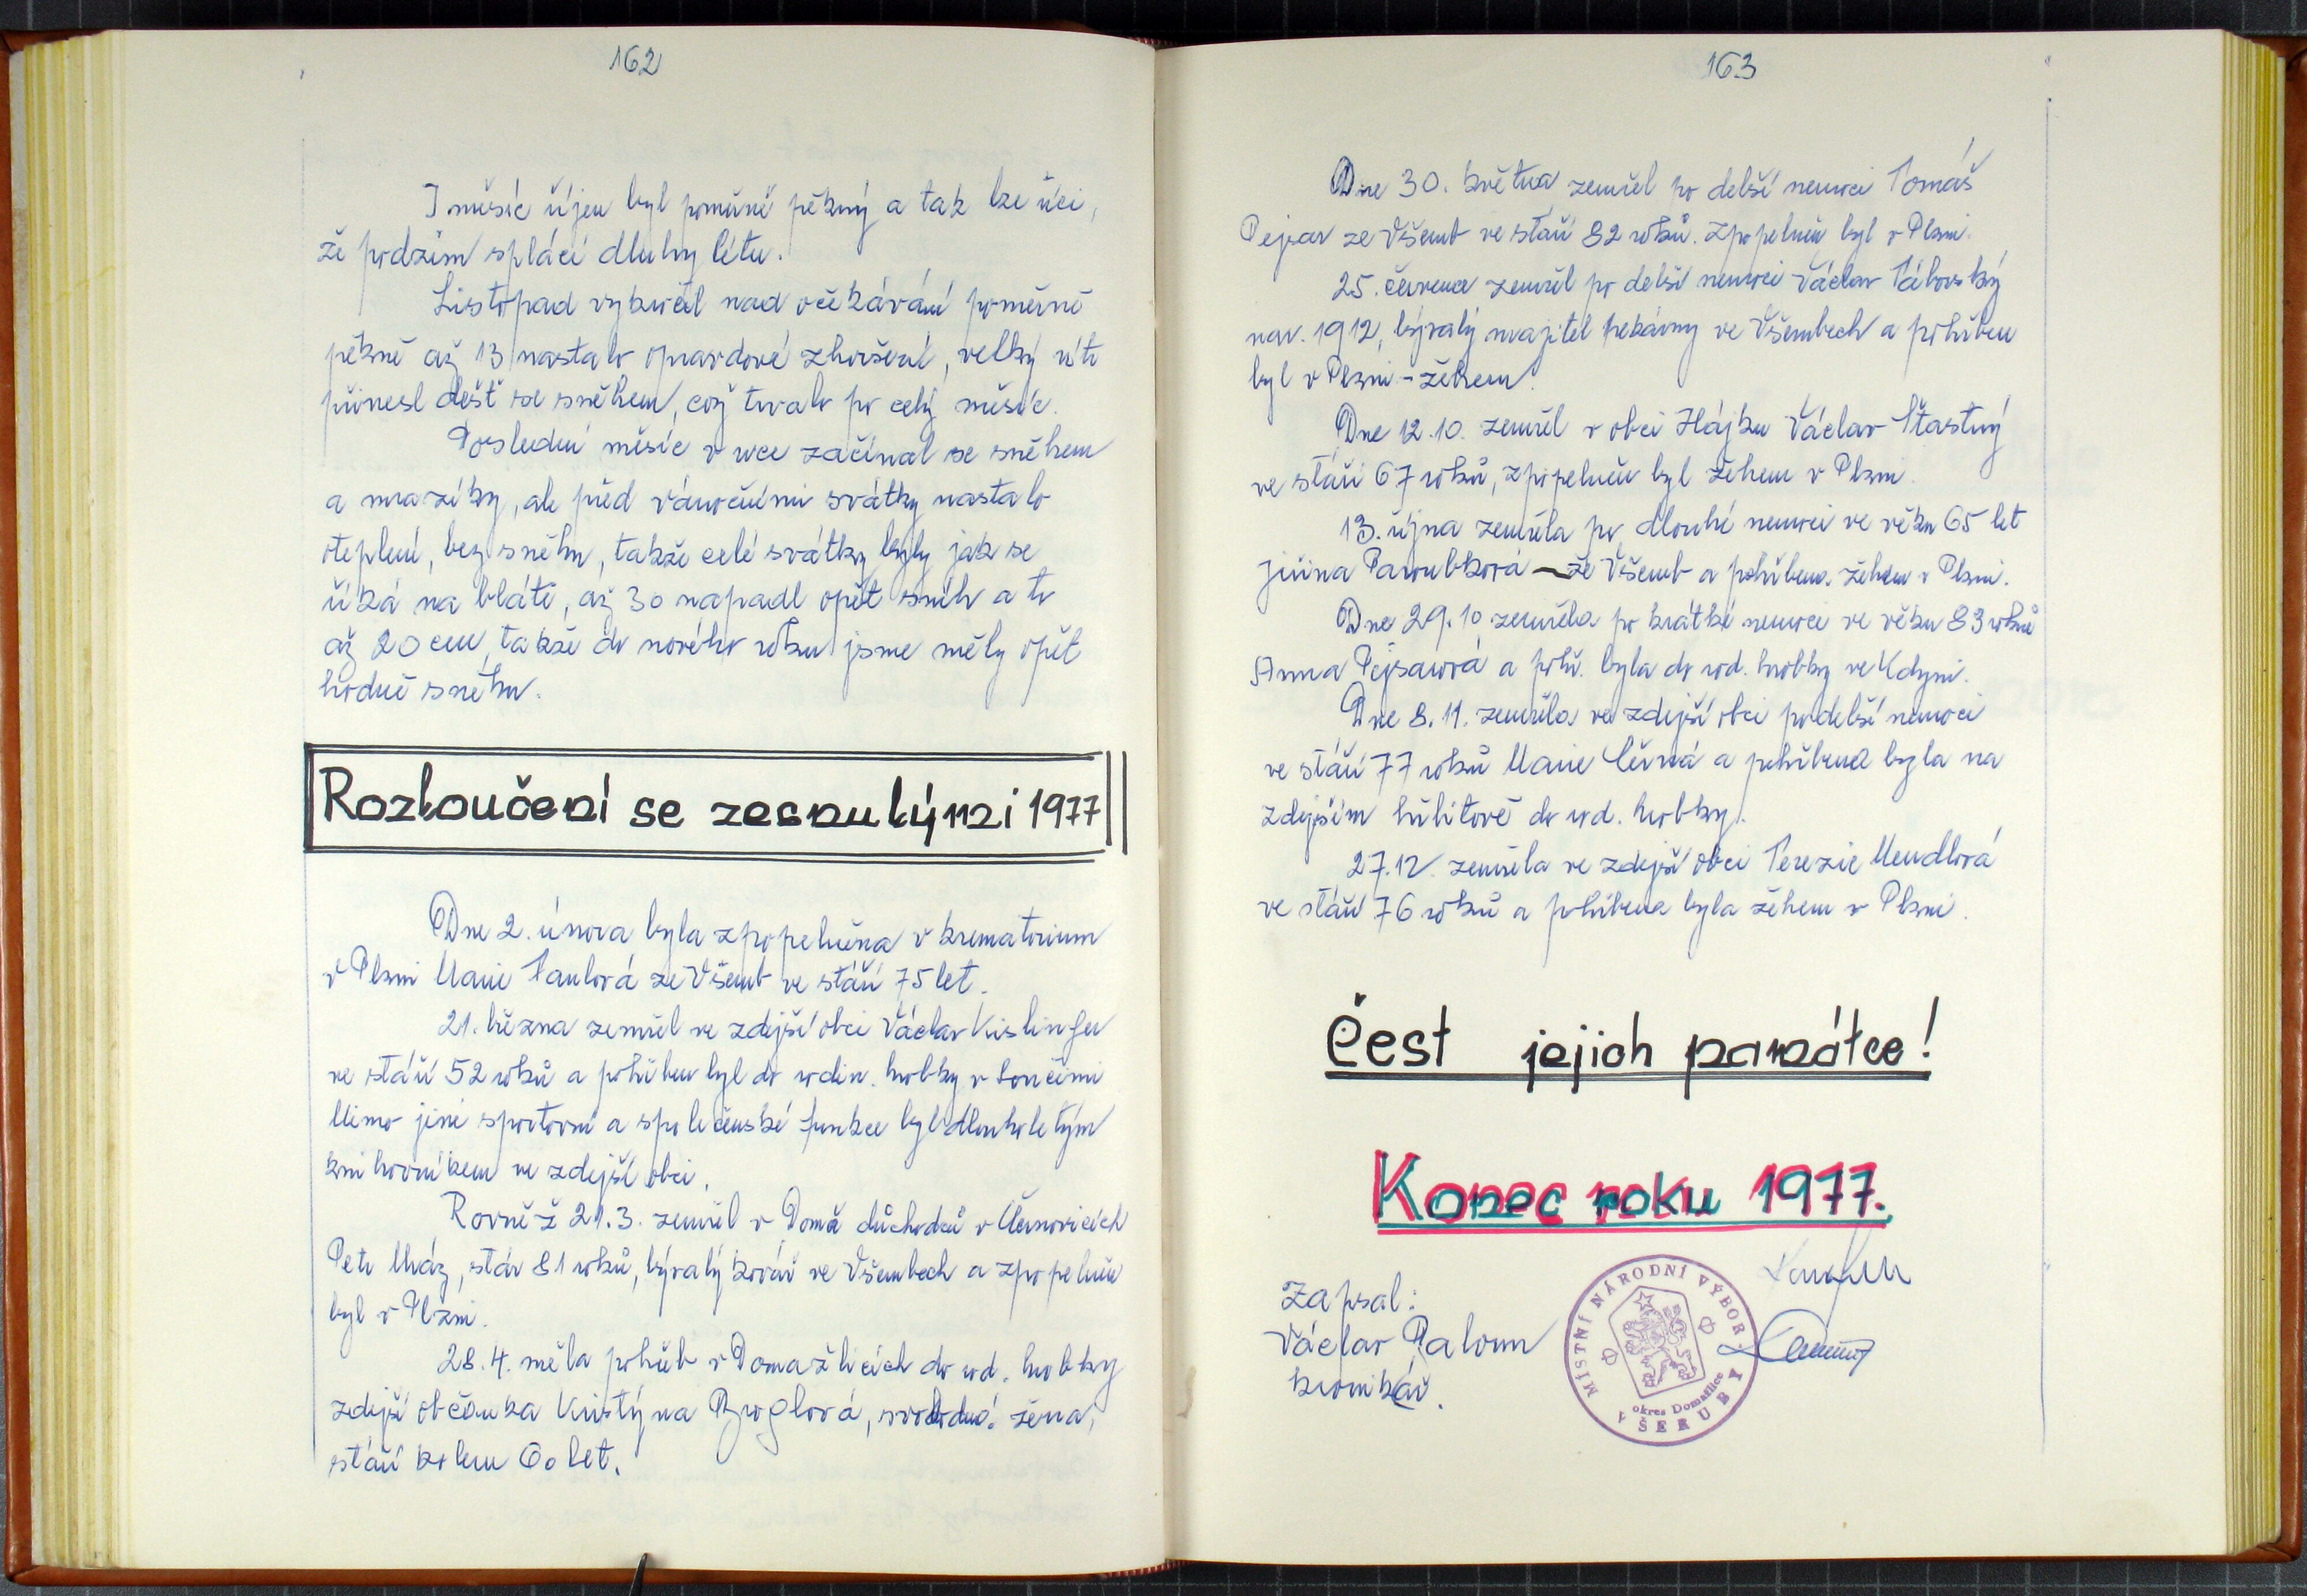 162
I měsíc říjen byl poměrně pěkný a tak lze říci,
že podzim splácí dluhy létu.
Listopad vykročil nad očekávání poměrně
pěkně až 13 nastalo opravdové zhoršení, velký vítr
přinesl déšť se sněhem, což trvalo po celý měsíc.
Poslední měsíc v roce začínal se sněhem
a mrazíky, ale před vánočními svátky nastalo
oteplení, bez sněhu, takže celé svátky byly jak se
říká na blátě, až 30 napadl opět sníh a to
až 20 cm, takže do nového roku jsme měly opět
hodně sněhu.
Rozloučení se zesnulými 1977
Dne 2. února byla zpopelněna v krematorium
v Plzni Marie ze Všerub ve stáří 75 let.
21. března zemřel ve zdejší obci Václav Kislinger
ve stáří 52 roků a pohřben byl do rodin. hrobky v Loučimi
Mimo jiné sportovní a společenské funkce byl dlouholetým
knihovníkem ve zdejší obci.
Rovněž 21.3. zemřel v Domě důchodců v Černovicích
Petr Mráz, stár 81 roků, bývalý kovář ve Všerubech a zpopelněn
byl v Plzni.
28.4. měla pohřeb v Domažlicích do rod. hrobky
zdejší občanka Kristýna svobodná žena,
stáří kolem 60 let.
163
Dne 30. května zemřel po delší nemoci Tomáš
Pejsar ze Všerub ve stáří 82 roků. Zpopelněn byl v Plzni.
25. července zemřel po delší nemoci Václav Táborský
nar. 1912, bývalý majitel pekárny ve Všerubech a pohřben
byl v Plzni - žehem.
Dne 12.10. zemřel v obci Hájku Václav Šťastný
ve stáří 67 roků, zpopelněn byl žehem v Plzni.
13. října zemřela po dlouhé nemoci ve věku 65 let
Jiřina Paroubková - ze Všerub a pohřbena žehem v Plzni.
Dne 29.10 zemřela po krátké nemoci ve věku 83 roků
Anna Pejsarová a pohř. byla do rod. hrobky ve Kdyni.
Dne 8.11. zemřela ve zdejší obci po delší nemoci
ve stáří 77 roků Marie Černá a pohřbena byla na
zdejším hřbitově do rod. hrobky.
27.12. zemřela ve zdejší obci Terezie Mendlová
ve stáří 76 roků a pohřbena byla žehem v Plzni.
Čest jejich památce!
Konec roku 1977.
Zapsal:
Václav Paloun
kronikář.
MÍSTNÍ NÁRODNÍ VÝBOR
VŠERUBY
okres Domažlice